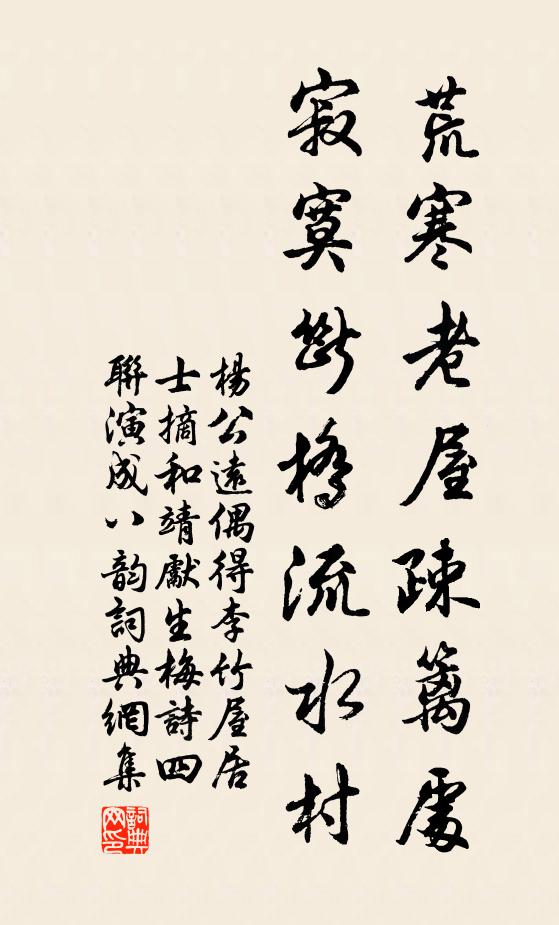 荒寒老屋疎篱處
寂寞斷橋流水村
楊公遠偶得李竹屋居
士摘和靖獻生梅詩四
聯演成八韵詞典網集
詞典網印